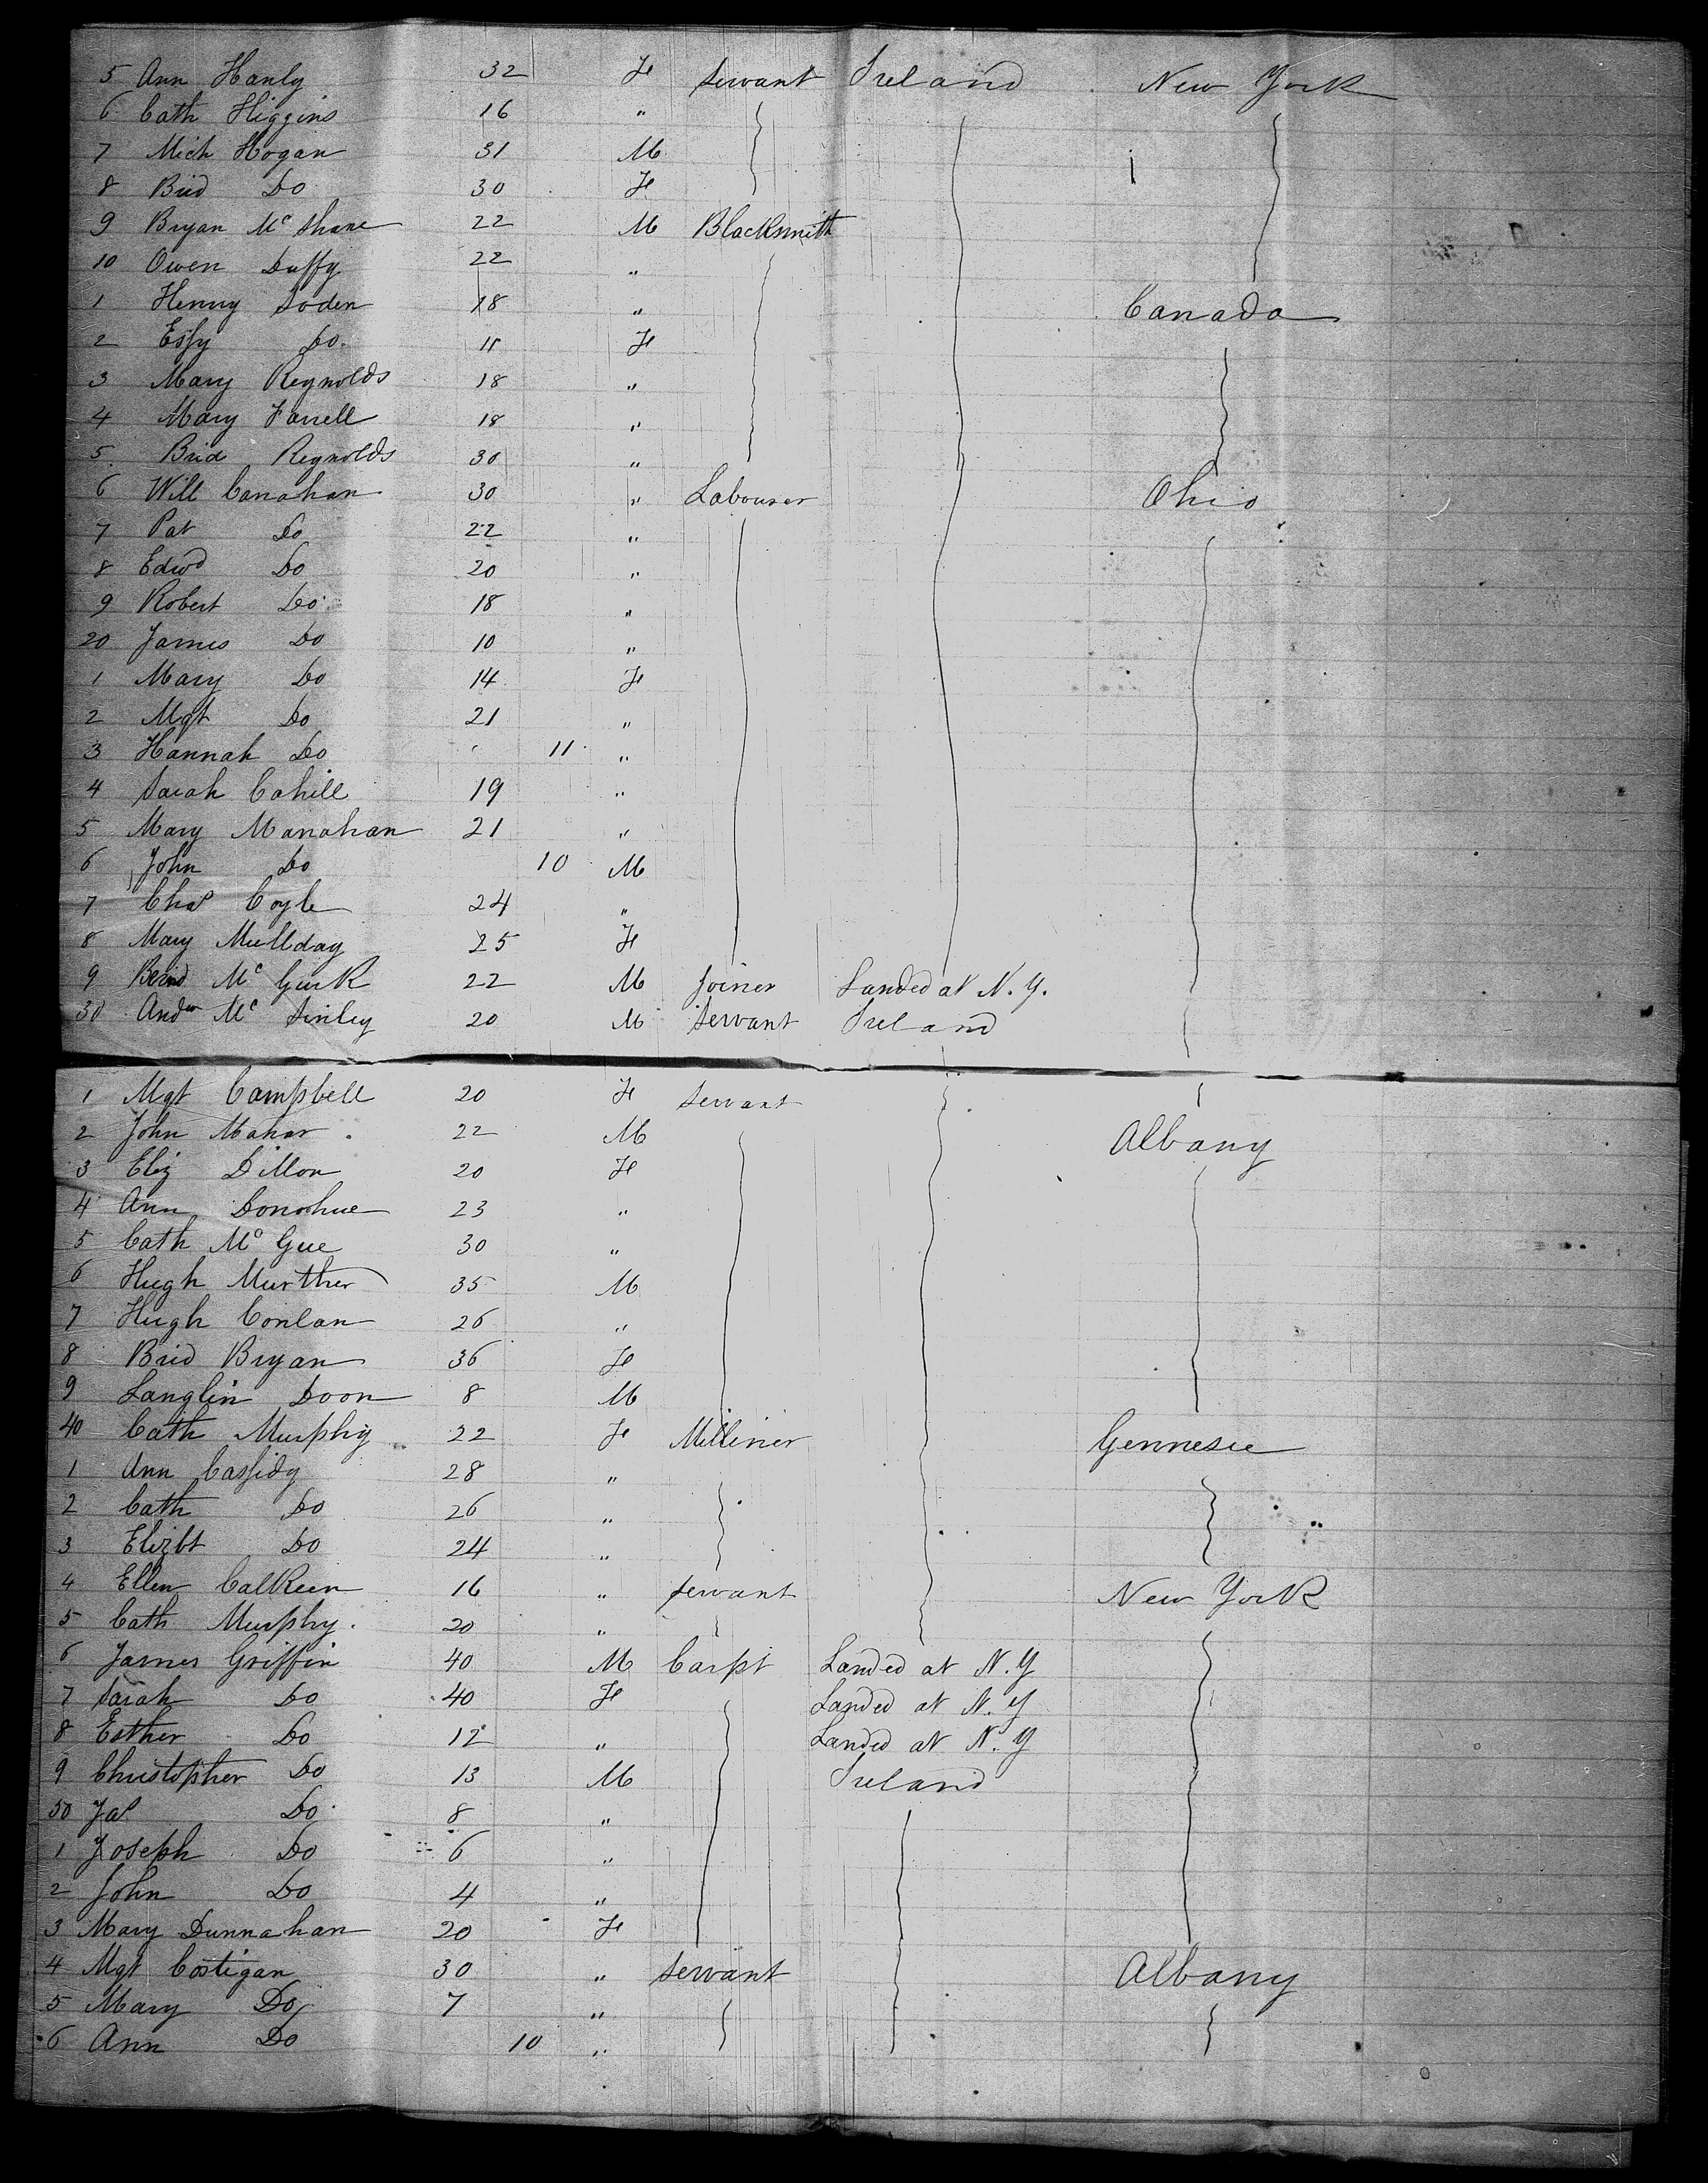 5 Ann Hanly 32 F Servant Ireland New York
6 Cath Higgins 16 "
7 Mich Hogan 31 M
8 Brid Do 30 F
9 Bryan Mc Shane 22 M Blacksmith
10 Owen Duffy 22 "
1 Henry Soden 18 " Canada
2 Essy Do. 11 F
3 Mary Reynolds 18 "
4 Mary Farrell 18 "
5 Brid Reynolds 30 "
6 Will Canahan 30 " Labourer Ohio
7 Pat Do 22 "
8 Edwd Do 20 "
9 Robert Do 18 "
20 James Do 10 "
1 Mary Do 14 F
2 Mgt Do 21 "
3 Hannah Do 11 "
4 Sarah Cahill 19 "
5 Mary Manahan 21 "
6 John Do 10 M
7 Chas Coyle 24 "
8 Mary Mullday 25 F
9 Bernd Mc Gurk 22 M Joiner Landed at N.Y.
30 Andw Mc Sinley 20 M Servant Ireland
1 Mgt Campbell 20 F Servant
2 John Mahar 22 M Albany
3 Eliz Dillon 20 F
4 Ann Donohue 23 "
5 Cath Mc Gue 30 "
6 Hugh Murther 35 M
7 Hugh Conlan 26 "
8 Brid Bryan 36 F
9 Langlin Doon 8 M
40 Cath Murphy 22 F Milliner Gennesee
1 Ann Cassidy 28 "
2 Cath Do 26 "
3 Elizbt Do 24 "
4 Ellen Calkeen 16 " Servant New York
5 Cath Murphy. 20 "
6 James Griffin 40 M Carpt Landed at N.Y
7 Sarah Do 40 F Landed at N.Y
8 Esther Do 12 " Landed at N.Y
9 Christopher Do 13 M Ireland
50 Jas Do 8 "
1 Joseph Do 6 "
2 John Do 4 "
3 Mary Dunnahan 20 F
4 Mgt Costigan 30 " Servant Albany
5 Mary Do 7 "
6 Ann Do 10 "